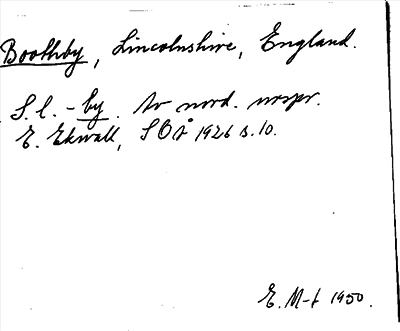 Boothby, Lincolnshire, England.
S. l. - by. Av nord. urspr.
E. Ekwall, SOÅ 1926 s. 10.
E. M-t 1950.